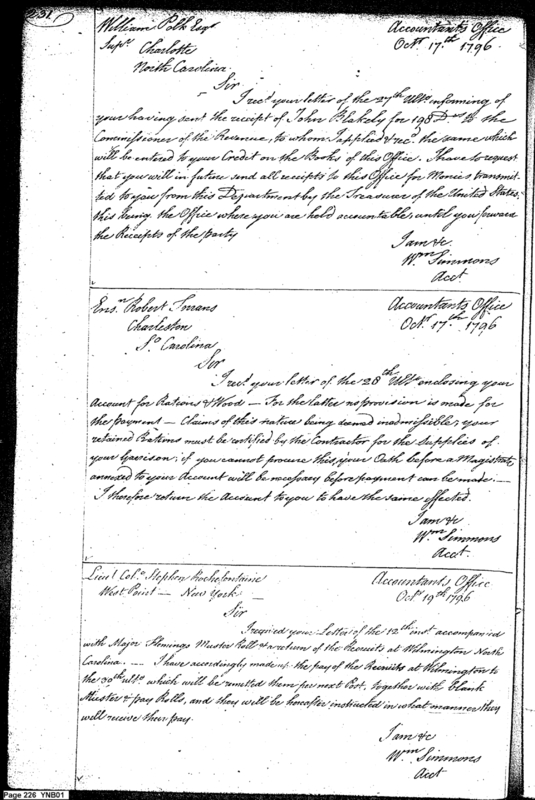 231.
William Polk Esqr
Accountants Office
Octr 17.th 1796
Supr Charlotte
North Carolina
Sir
I recd your letter of the 27th Ulto informing of
your having sent the receipt of John Blakely for 198 Drs to the
Commissioner of the Revenue, to whom I applied & recd the same which
will be entered to your Credit on the Books of this Office. I have to request
that you will in future send all receipts to this Office for Monies transmit-
ted to you from this Department by the Treasurer of the United States,
this being the Office where you are held accountable, until you forward
the Receipts of the party
I am &c
Wm Simmons
Acct
Ensn Robert
Accountants Office
Octr 17th 1796
Charleston
So Carolina
Sir
I recd your letter of the 28th Ulto enclosing your
Account for Rations & Wood — For the latter no provision is made for
the payment — Claims of this nature being deemed inadmissible, your
retained Rations must be certified by the Contractor for the Supplies of
your Garrison; if you cannot procure this, your Oath before a Magistrate
annexed to your Account will be necessary before payment can be made. —
I therefore return the Account to you to have the same effected.
I am &c
Wm Simmons
Acct.
Lieut Colo Stephen Rochefontaine
Accountants Office
Octr 19th 1796
West Point — New York —
Sir
I received your Letter of the 12th inst accompanied
with Major Flemings Muster Roll & a return of the Recruits at Wilmington North
Carolina. — I have accordingly made up the pay of the Recruits at Wilmington to
the 30th ulto which will be remitted them per next Post, together with blank
Muster & pay Rolls, and they will be hereafter instructed in what manner they
will receive their pay.
I am &c
Wm Simmons
Acct
Page 226 YNB01